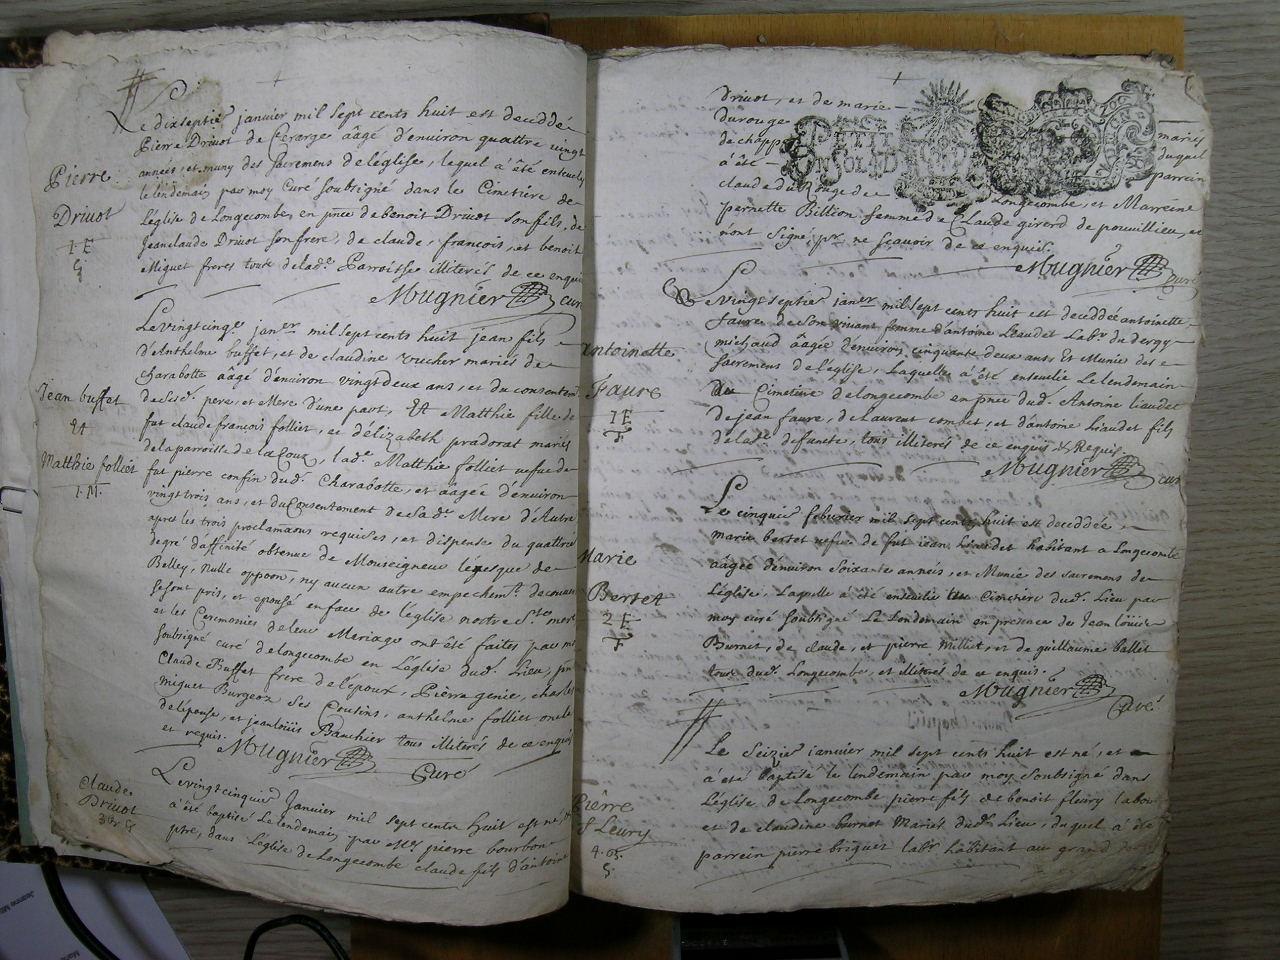 Le dixseptie janvier mil sept cents huit est deceddé
Pierre Driuot de Cerarge ââgé d'environ quattre vingt
années, et muny des sacremens de l'église, lequel à été enteuely
le lendemain par moy Curé soubsigné dans le Cimetière de
l'église de Longecombe, en pnce de benoit Driuot son fils, de
Jean claude Driuot son frere, de claude, françois, et benoit
Miguet freres tous de lad.e Parroisse illiterés de ce enquis
Mugnier cur
Pierre
Driuot
1 E
Le vingt cinqe janer mil sept cents huit jean fils
d'Anthelme buffet, et de claudine rucher mariés de
charabotte ââgé d'environ vingt deux ans, et du consentemt
de ses d. pere, et Mere d'une part, Et Matthie fille de
fut claude françois folliet, et d'élizabeth pradorat mariés
de la parroisse de la Couz, lad.e Matthie folliet vefue de
fut pierre confin dud. Charabotte, et ââgée d'environ
vingt trois ans, et du Consentement de sad. Mere d'Autre
apres les trois proclamaons requises, et dispense du quattrie
degré d'affinité obtenue de Monseigneur l'éuesque de
Belley, Nulle oppoon, ny aucun autre empechemt
se sont pris, et epousé en face de l'église nostre Ste mere
et les Ceremonies de leur Mariage ont été faites par moy
soubsigné curé de longecombe en l'église dud. Lieu, pnt
Claude Buffet frere de l'époux, Pierre genie, charles
miguet Burgeoz ses Cousins, anthelme folliet oncle
de l'épouse, et jean louis Banchier tous illiterés de ce enquis
et requis. Mugnier Curé
Jean buffet
Et
Matthie folliet
1. M.
Le vingt cinquie Janvier mil sept cents huit est né, et
a été baptisé Le lendemain par Mre pierre bourbon
ptre, dans L'église de Longecombe claude fils d'antoine
Claude
Driuot
3
Driuot, et de marie
durouge mariés
de chapp duquel
à été parrein
claude du Rouge de Longecombe, et Marreine
pernette Billion femme de Claude girerd de pouuillieu, et
n'ont signé, pr ne sçauoir de ce enquis.
Mugnier Curé
Le vingt septie janer mil sept cents huit est deceddée antoinette
faure de son viuant femme d'antoine Liaudet Labr du dergy
michaud ââgée d'environ cinquante deux ans, Et Munie des
sacremens de l'église, Laquelle à été enteuelie Le lendemain
au Cimetiere de longecombe en pnce dud. Antoine liaudet
de jean faure, de Laurent combet, et d'antoine Liaudet fils
de lad.e defuncte, tous illiterés de ce enquis & Requis
Mugnier cur
Antoinette
Faure
1 E
Le cinquie feburier mil sept cents huit est deceddée
marie berset vefue de fut jean Liaudet habitant a Longecombe
ââgée d'environ soixante années, et Munie des sacremens de
l'église, Laquelle a été enteuelie au Cimetiere dud. Lieu par
moy curé soubsigné Le Lendemain en presence de Jean louis
Burnet, de claude, et pierre Milliet, et de guillaume ballet
tous dud. Longecombe, et illiterés de ce enquis.
Mugnier
Curé
Marie
Berset
2 E
Le seizie janvier mil sept cents huit est né, et
a été baptisé le lendemain par moy soubsigné dans
l'église de longecombe pierre fils de benoit fleury labou
et de claudine burnet Mariés dud. Lieu, duquel à été
parrein pierre briguet labr hâbitant au grand
Pierre
fleury